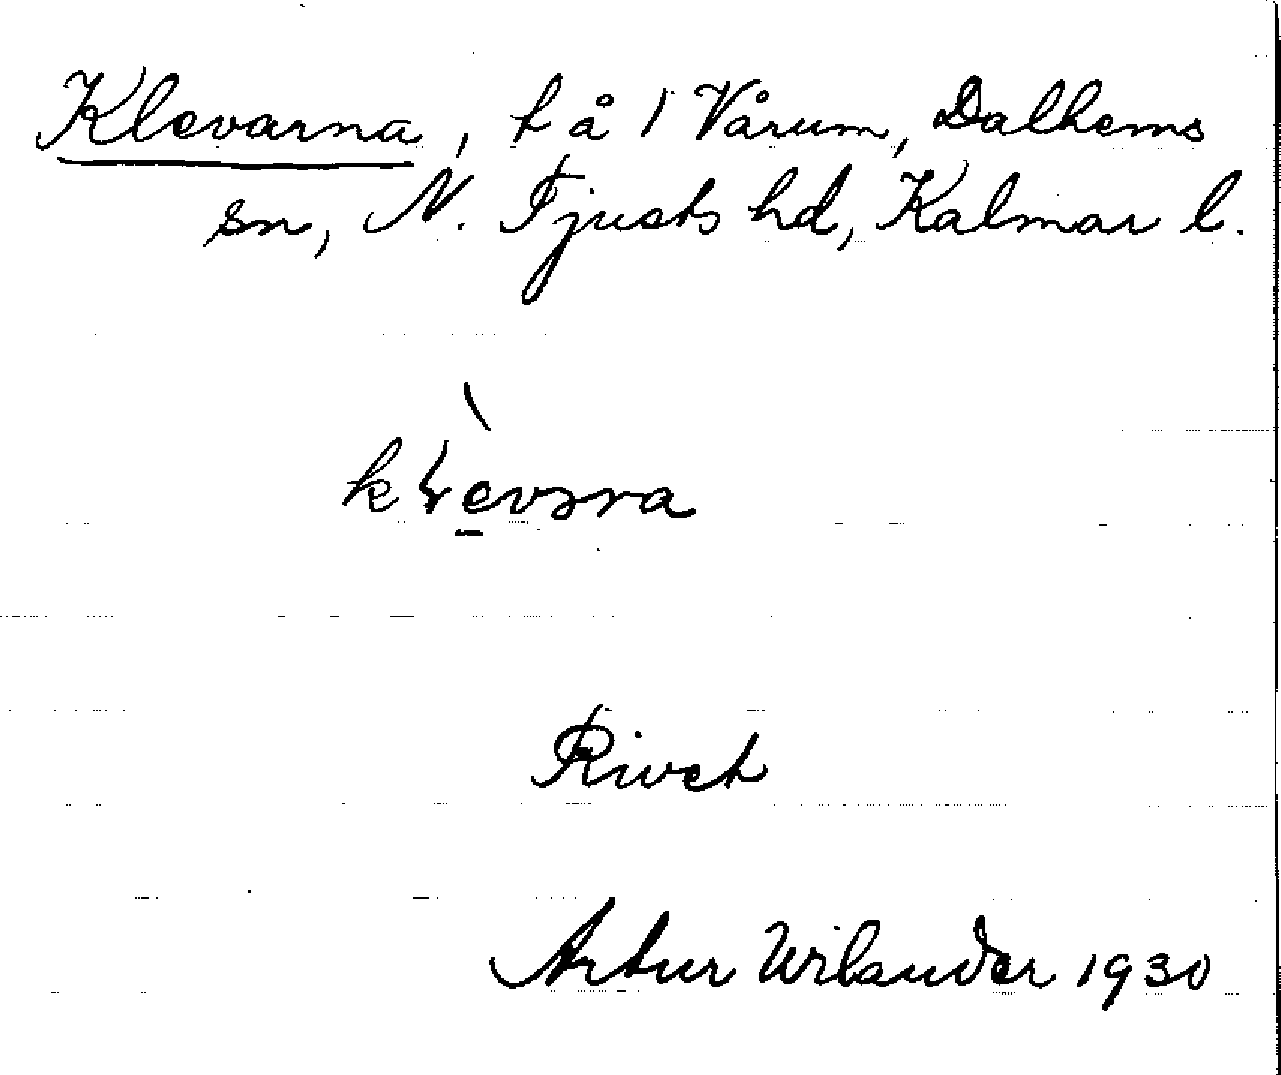 Klevarna, t å 1 Vårum, Dalhems
sn, N. Tjusts hd, Kalmar l.
Rivet
Artur Wilander 1930